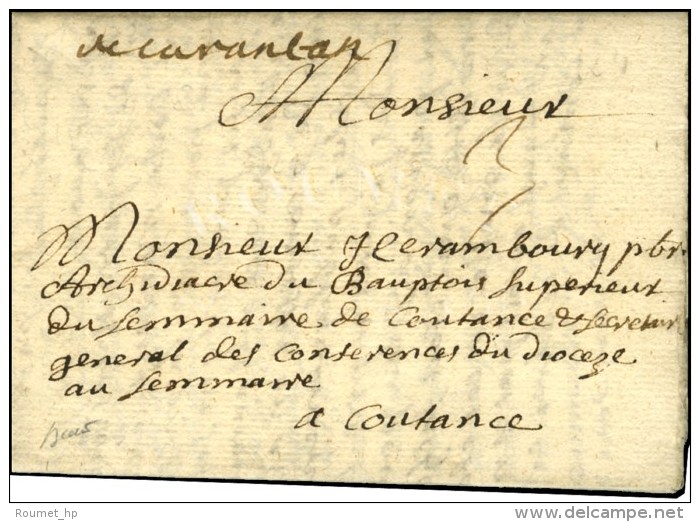 de carantan
Monsieur
3
Monsieur Herambourg pbr.
Archidiacre du Bauptois superieur
du semmaire de Coutance & secretair
general des Conferences du dioceze
au semmaire
a Coutance
Roumet_hp
delcampe.net